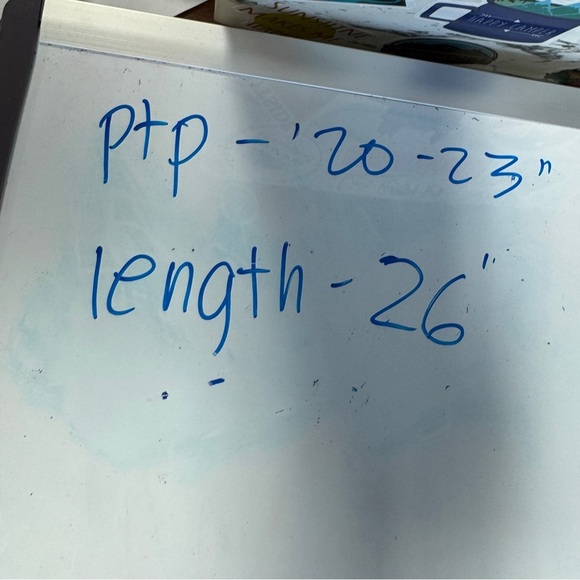 SUNSHINE
ptp - '20 - 23"
length - 26"